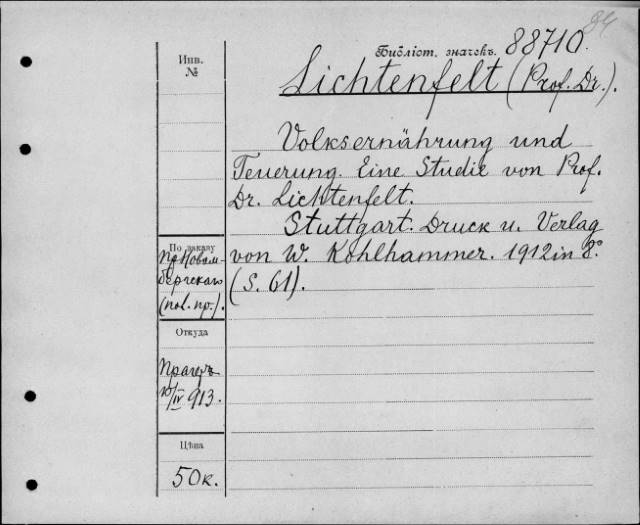 84
Библіот. значекъ. 88710.
Инв.
№
Lichtenfelt (Prof. Dr.).
Volksernährung und
Teuerung. Eine Studie von Prof.
Dr. Lichtenfelt.
Stuttgart. Druck u. Verlag
von W. Kohlhammer. 1912 in 8°
(S. 61).
По заказу
(pol. пр.).
Откуда
Прагеръ
10/IV 913.
Цѣна
50 к.